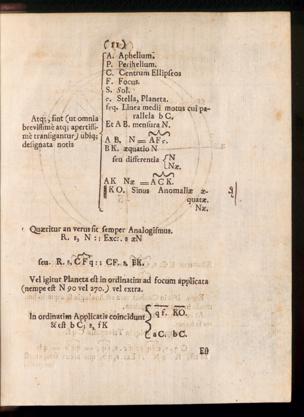 (11)
A. Aphelium.
P. Perihelium.
C. Centrum Ellipseos
F. Focus.
S. Sol.
ς. Stella, Planeta.
ςeq. Linea medii motus cui pa-
rallela b C,
Et AB. mensura N.
Atq;, sint (ut omnia
brevissimè atq; apertissi-
mè transigantur) ubiq;
designata notis
A B, N = AFς.
B K. æquatio N
seu differentia { N
Næ.
AK Næ = ACK.
KO. Sinus Anomaliæ æ-
quatæ.
Næ.
Quæritur an verus sit semper Analogismus.
R. s, N :: Exc: s æN
seu. R. s, CFq :: CF. s, BK.
Vel igitur Planeta est in ordinatim ad focum applicata
(nempe est N 90 vel 270.) vel extra.
In ordinatim Applicatis coincidunt { qf. KO.
& est b C; s, fK
aC. bC.
Est